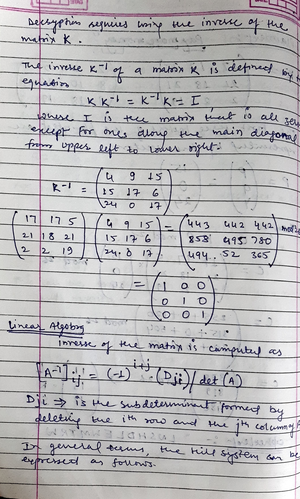 Decryption requires using the inverse of the
matrix K.
The inverse K⁻¹ of a matrix K is defined by
equation
K K⁻¹ = K⁻¹ K = I
where I is the matrix that is all zero
except for ones along the main diagonal
from upper left to lower right.
K⁻¹ = (4 9 15
15 17 6
24 0 17)
(17 17 5 (4 9 15 = (443 442 442
21 18 21 15 17 6 858 495 780 mod 26
2 2 19) 24 0 17) 494 52 365)
= (1 0 0
0 1 0
0 0 1)
Linear Algebra
Inverse of the matrix is computed as
[A⁻¹]ij = (-1)^(i+j) (Dji) / det (A)
Dji → is the subdeterminant formed by
deleting the ith row and the jth column
In general terms, the Hill system can be
expressed as follows.